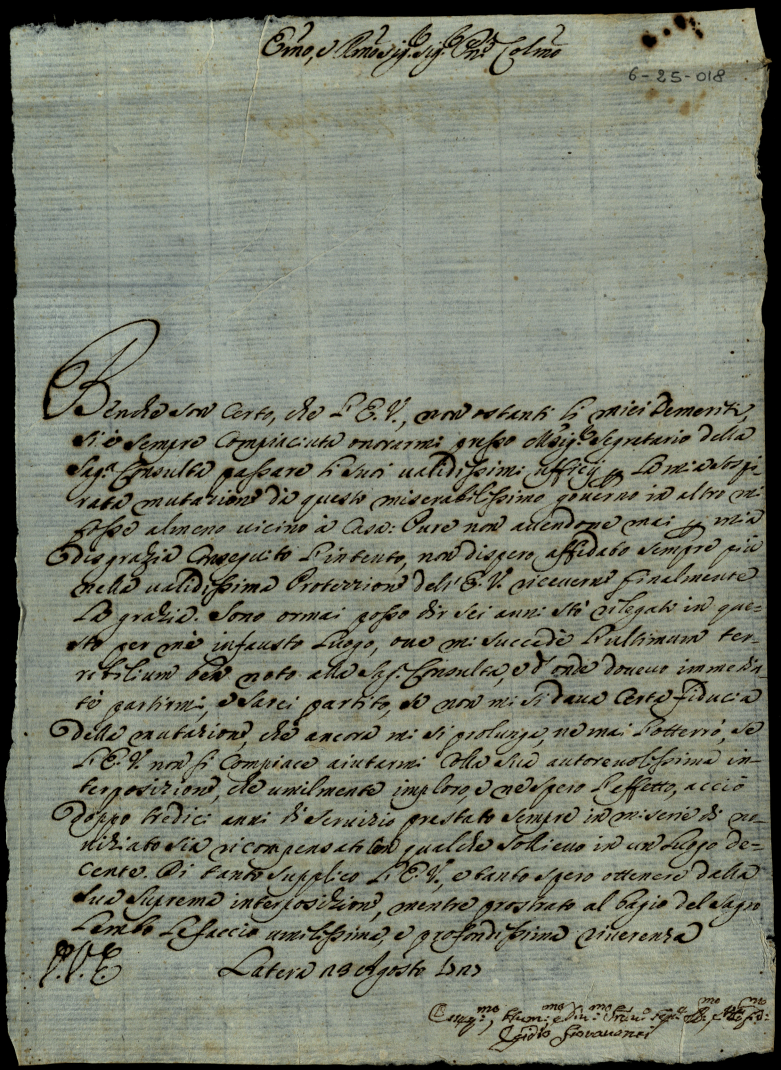 Emo, e Rmo Sig. Sig. Pne Colmo
6-25-018
Benche son Certo, che l'E.V., non ostanti li miei Demeriti,
si è sempre Compiaciuta onorarmi presso Msige Segretario della
Sagr. Consulta passare li suoi validissimi uffici p la mia sospi
rata mutazione da questo miserabilissimo governo in altro mi
fosse almeno vicino à Casa: Pure non avendone mai p mia
disgrazia Conseguito l'intento, non dispero, affidato sempre più
nella validissima Protezzione dell'E.V. riceverne finalmente
la grazia. Sono ormai posso dir sei anni stò rilegato in que=
sto per mè infausto Luogo, ove mi succede l'ultimum ter=
ribilium ben noto alla Sag. Consulta, e d'onde dovevo immedia
te partirmi, e sarei partito, se non mi si dava Certa fiducia
della mutazione, che ancora mi si prolunga, ne mai l'otterrò, se
l'E.V. non si Compiace aiutarmi Colla sua autorevolissima in=
terposizione, che umilmente imploro, e ne spero l'effetto, acciò
doppo tredici anni di servizio prestato sempre in miserie di no=
viziato sia ricompensato con qualche sollievo in un Luogo de=
cente. Di tanto supplico l'E.V., e tanto spero ottenere dalla
sua suprema interposizione, mentre prostrato al bagio del Sagro
Lembo le faccio umilissima, e profondissima riverenza
D.V.E.
Latera 13 Agosto
mo, Hum: Div:mo
Egidio Giovannei